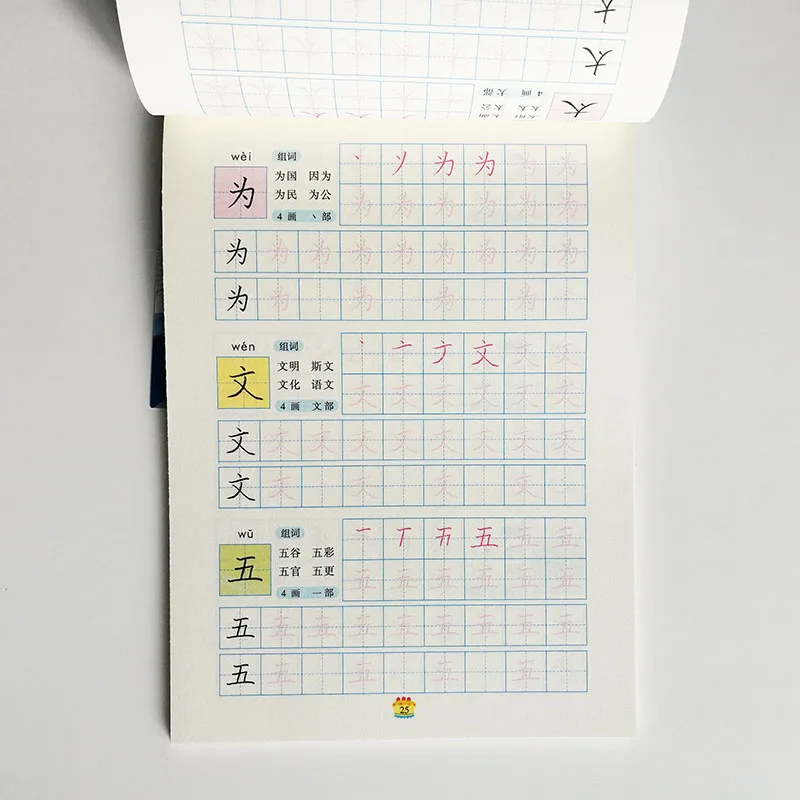 太
太
太
4 画 大部
太太 太公
wèi 组词
为 为国 因为
为民 为公
4 画 丶部
丶 丷 为 为 为 为
为 为 为 为 为 为
为 为 为 为 为 为 为 为 为
为 为 为 为 为
wén 组词
文 文明 斯文
文化 语文
4 画 文部
丶 亠 ナ 文 文 文
文 文 文 文 文 文
文 文 文 文 文 文 文 文 文
文 文 文 文 文
wǔ 组词
五 五谷 五彩
五官 五更
4 画 一部
一 丅 五 五 五
五 五 五 五 五 五
五 五 五 五 五 五 五 五 五
五 五 五 五 五
25